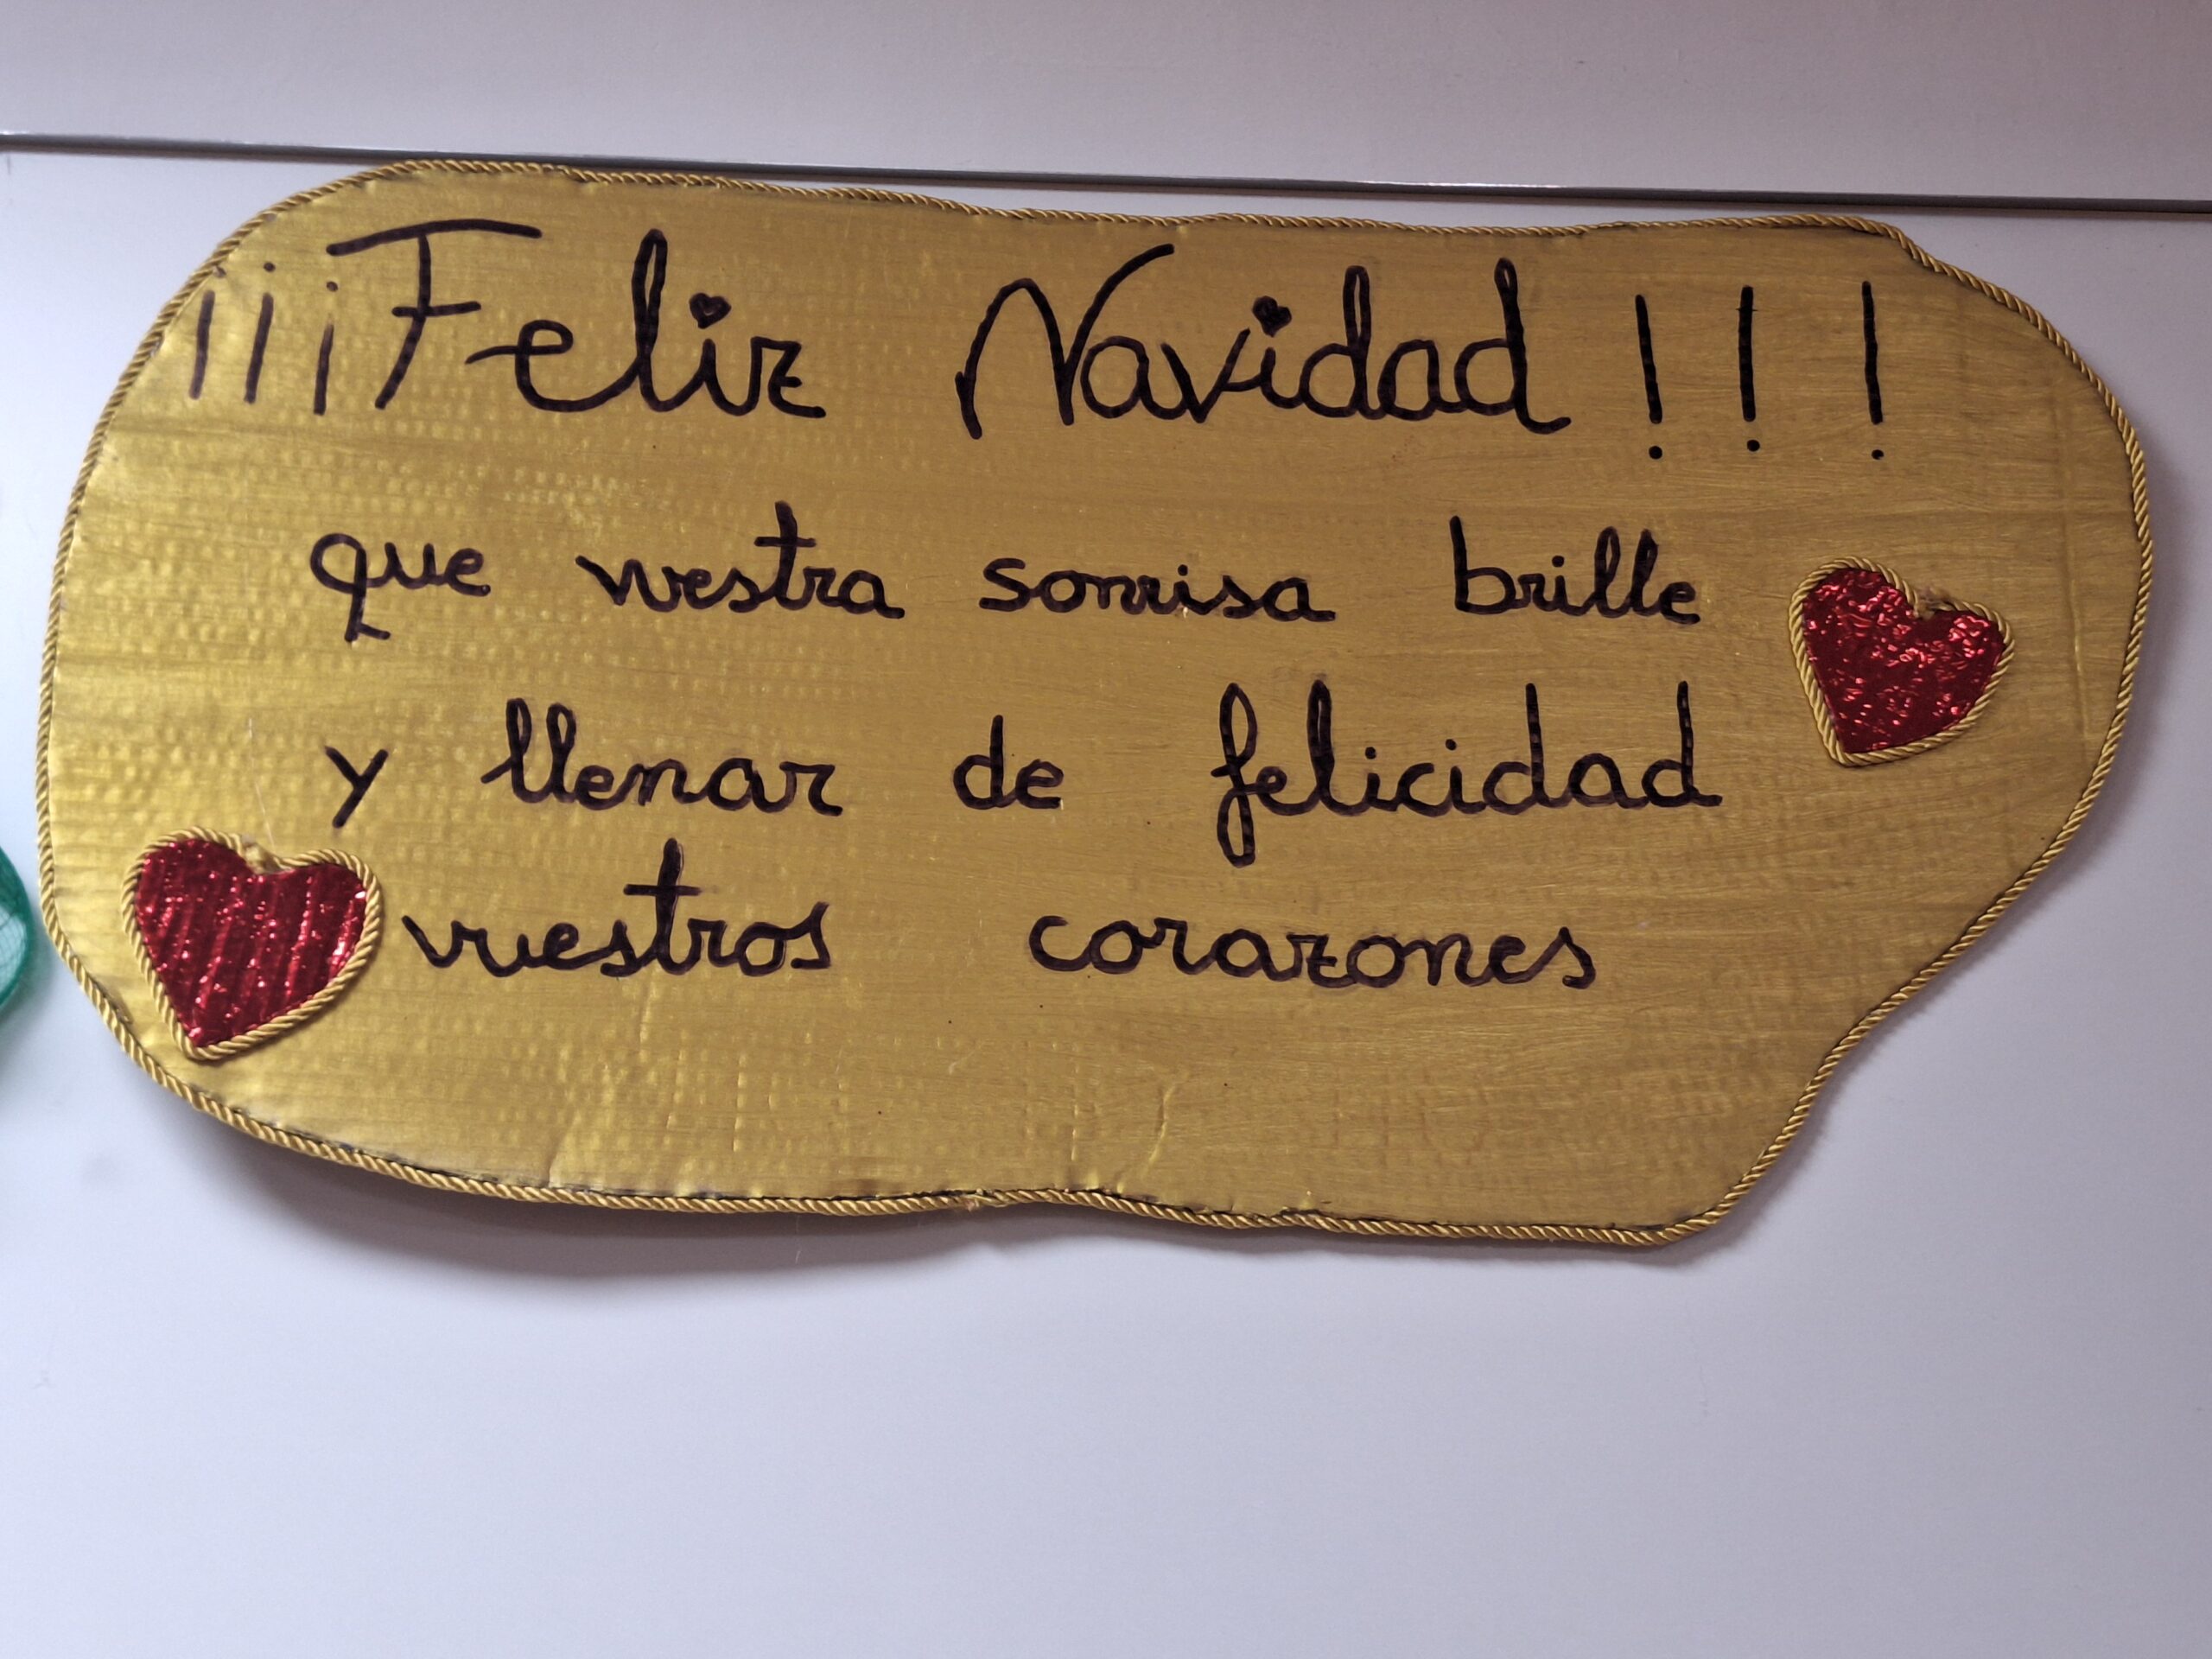 ¡¡¡Feliz Navidad!!!
que vuestra sonrisa brille
y llenar de felicidad
vuestros corazones